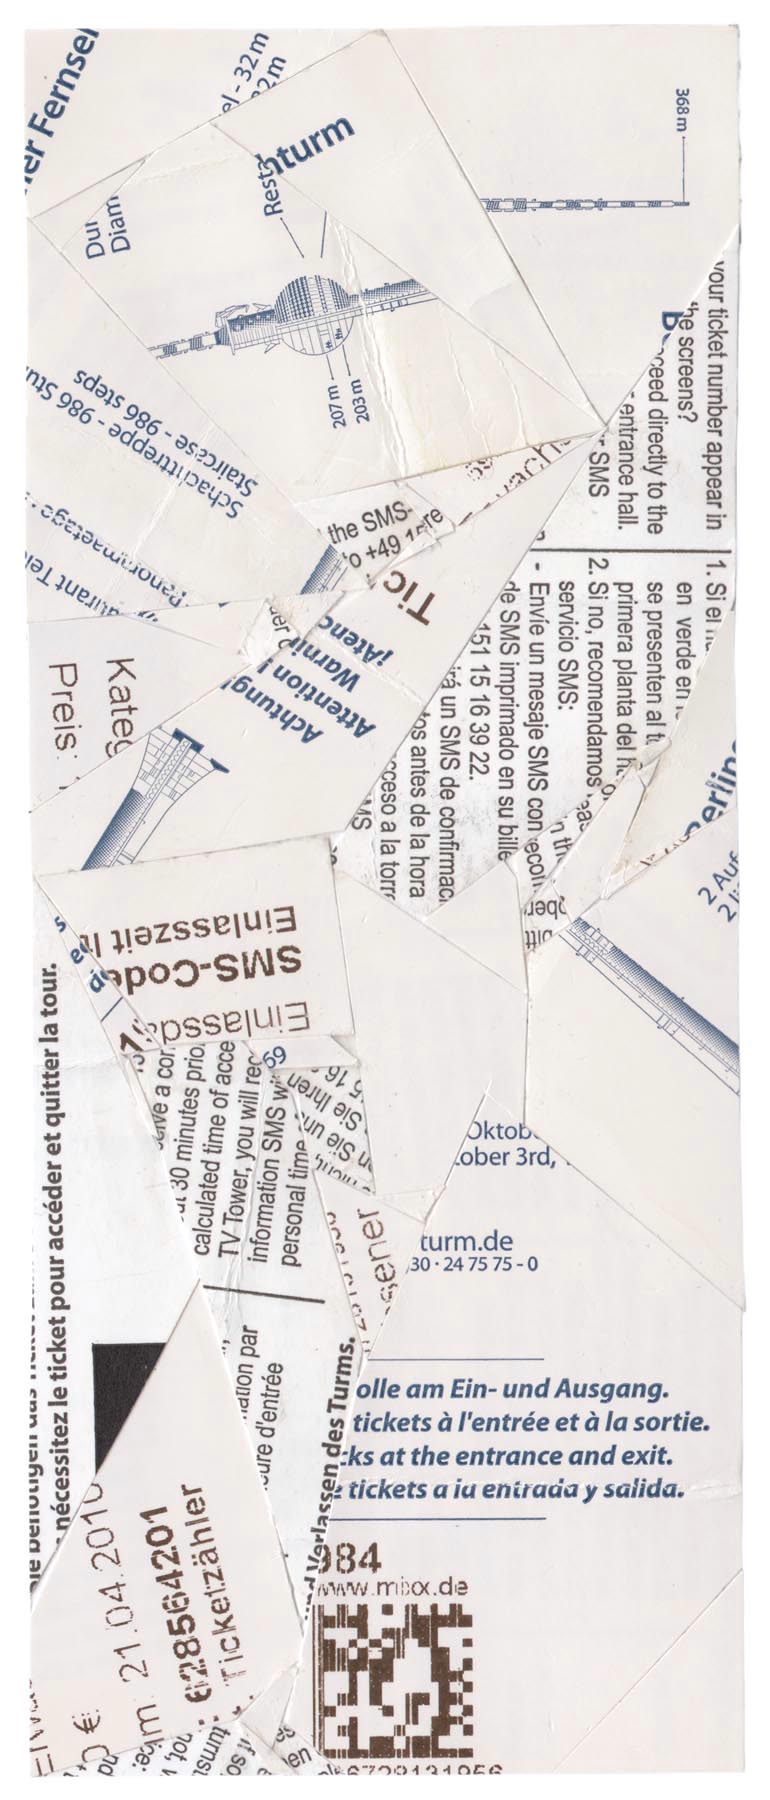 er Fernse
el - 32m
2m
turm
368 m
Rest
Dur
Diam
207 m
203 m
Schachttreppe - 986 Stu
Staircase - 986 steps
Panoramaetage
urant Tele
your ticket number appear in
the screens?
ceed directly to the
entrance hall.
SMS
the SMS-
to +49 15
Tic
Achtung!
Attention !
Warni
¡Atenc
Kateg
Preis:
1. Si el nu
en verde en l
se presenten al tu
primera planta del h
2. Si no, recomendamos
servicio SMS:
- Envíe un mesaje SMS con
de SMS imprimado en su bille
151 15 16 39 22.
irá un SMS de confirmac
tos antes de la hora
ceso a la torre
MS
Berlin
2 Auf
2 li
Einlasszeit l
SMS-Code
Einlassda
69
nécessitez le ticket pour accéder et quitter la tour.
ie benötigen das Ticket
eive a con
ut 30 minutes prio
calculated time of acce
TV Tower, you will rec
information SMS w
personal time
Sie Ihren
n Sie un
Oktob
tober 3rd,
turm.de
30 · 24 75 75 - 0
mation par
ure d'entrée
nd Verlassen des Turms.
olle am Ein- und Ausgang.
tickets à l'entrée et à la sortie.
cks at the entrance and exit.
e tickets a la entrada y salida.
984
www.mixx.de
im: 21.04.2010
: 628564201
Ticketzähler
0 €
6729131956